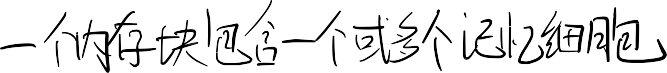 一个内存块包含一个或多个记忆细胞